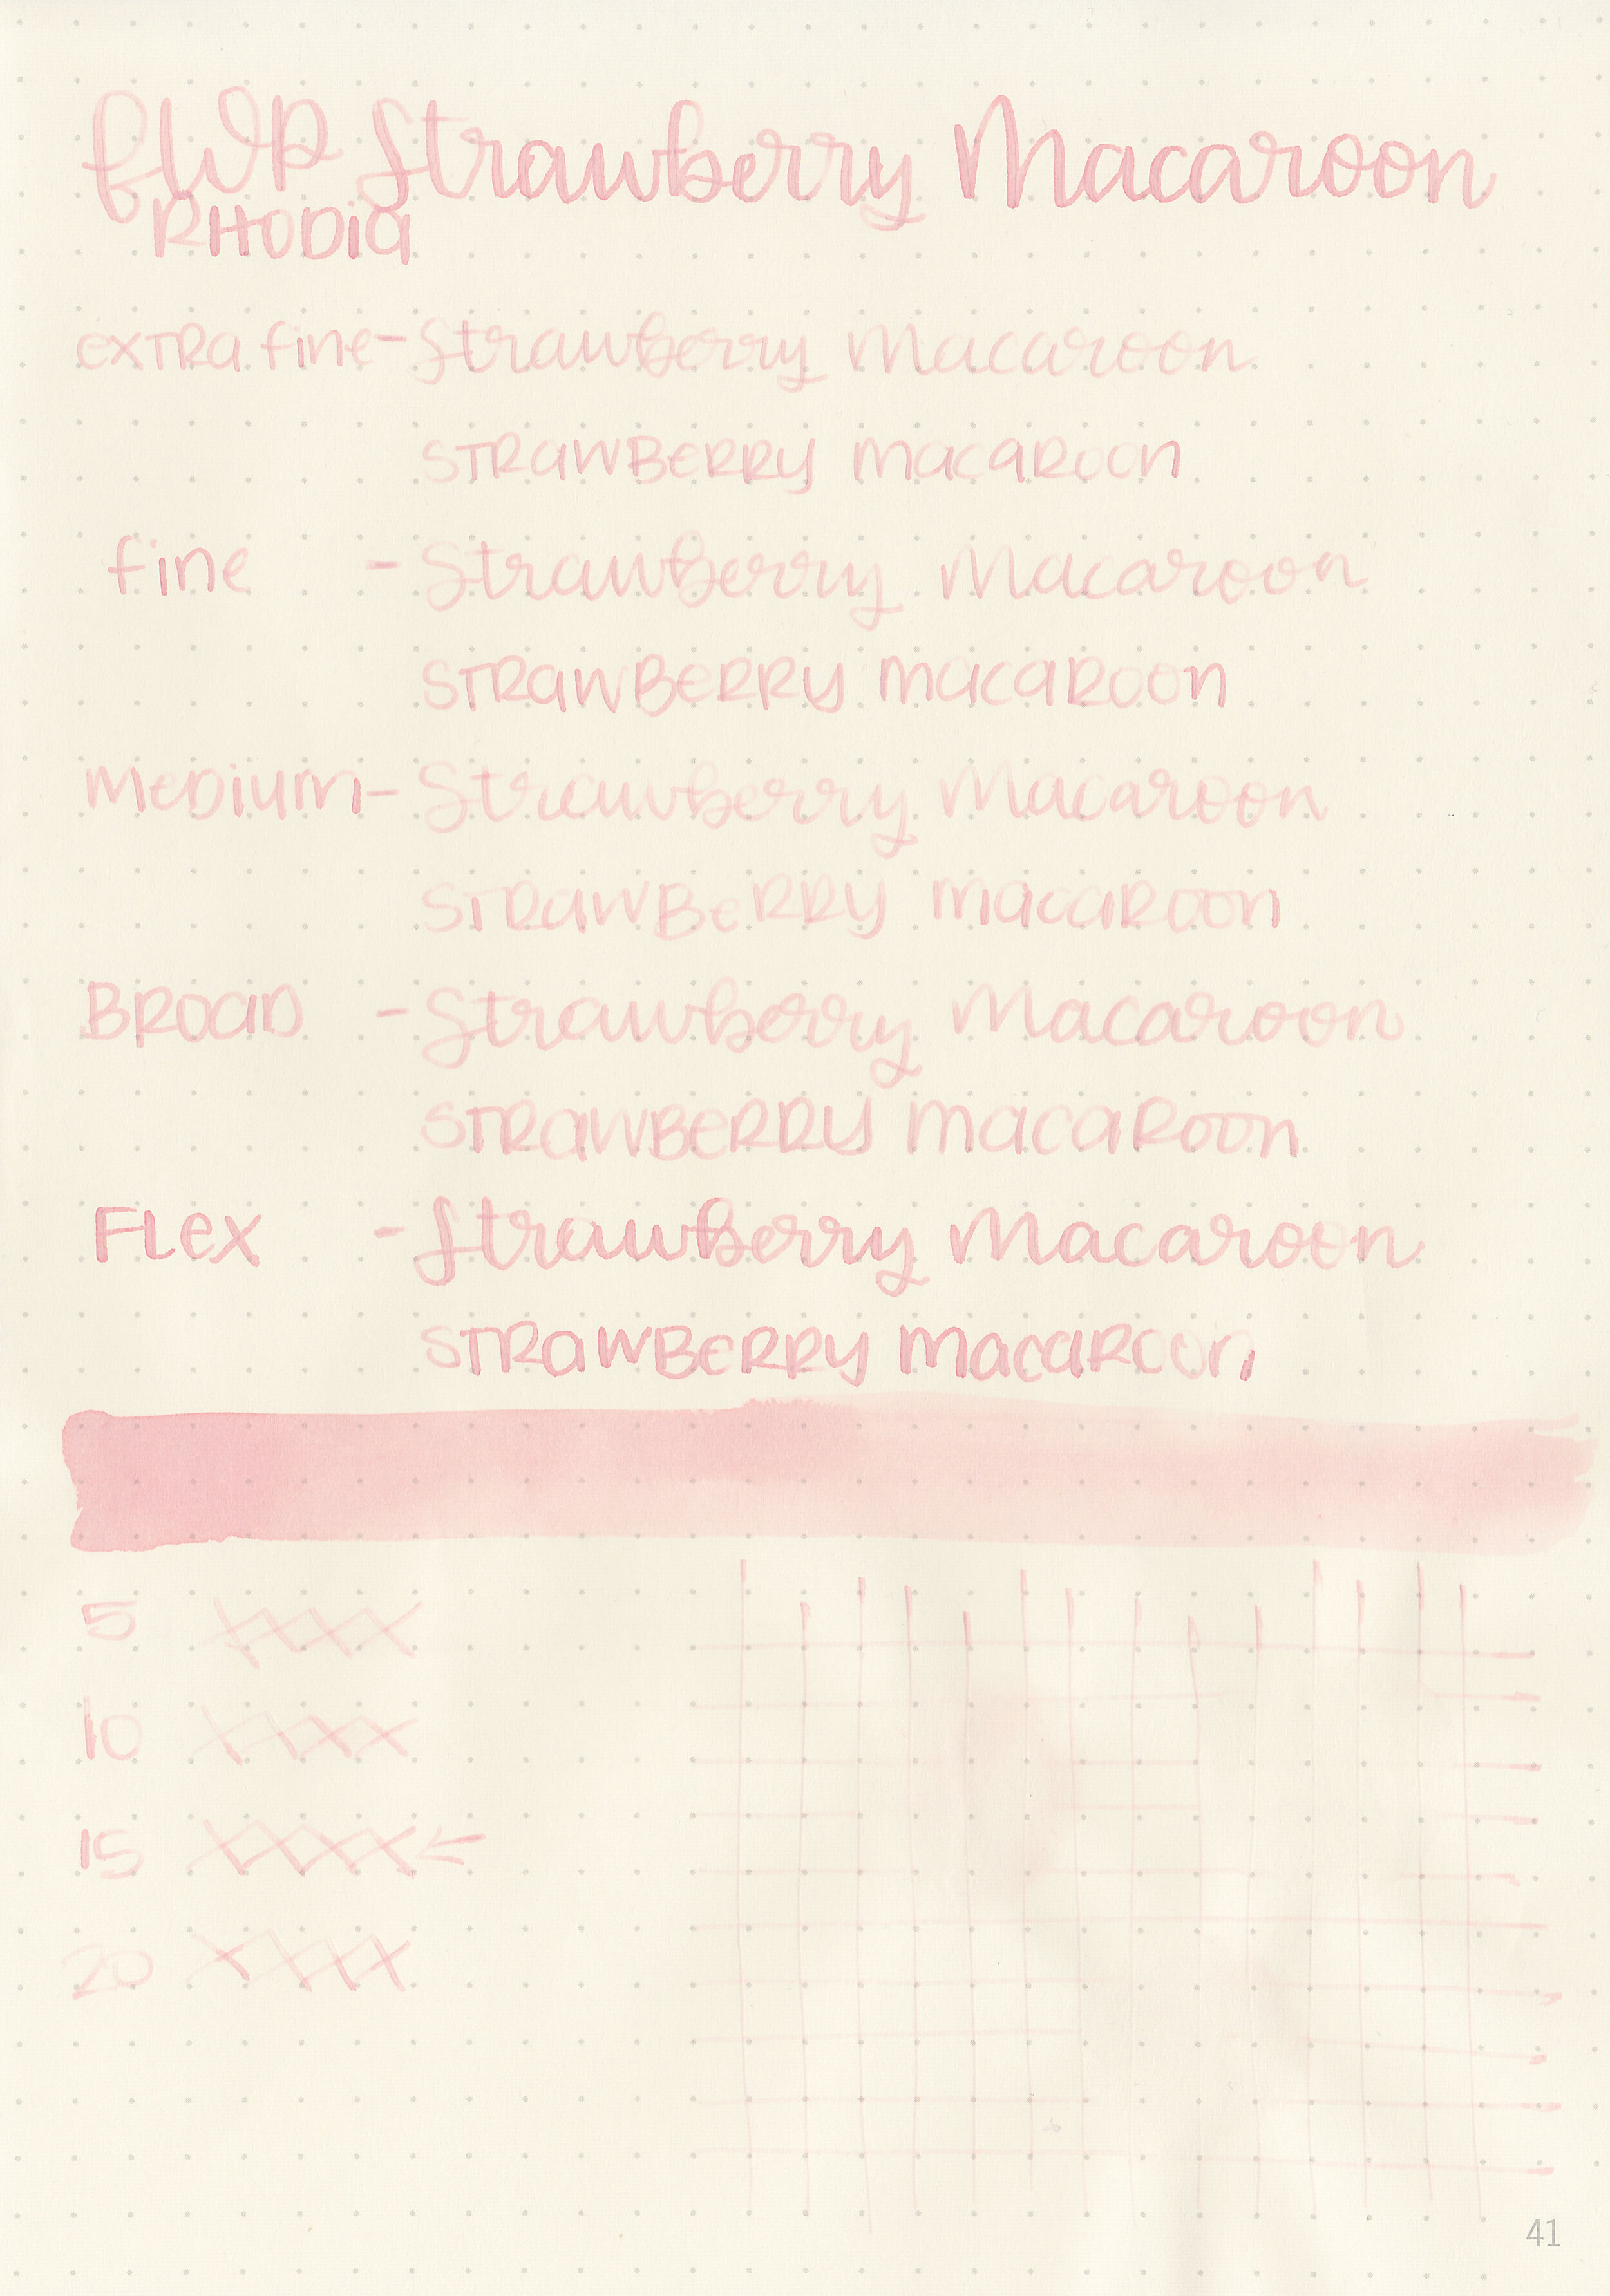 FWP Strawberry Macaroon
RHODIA
extra fine - Strawberry Macaroon
STRAWBERRY MACAROON
fine - Strawberry Macaroon
STRAWBERRY MACAROON
MEDIUM - Strawberry Macaroon
STRAWBERRY MACAROON
BROAD - Strawberry Macaroon
STRAWBERRY MACAROON
FLEX - Strawberry Macaroon
STRAWBERRY MACAROON
5 XXXX
10 XXXX
15 XXXX ←
20 XXXX
41